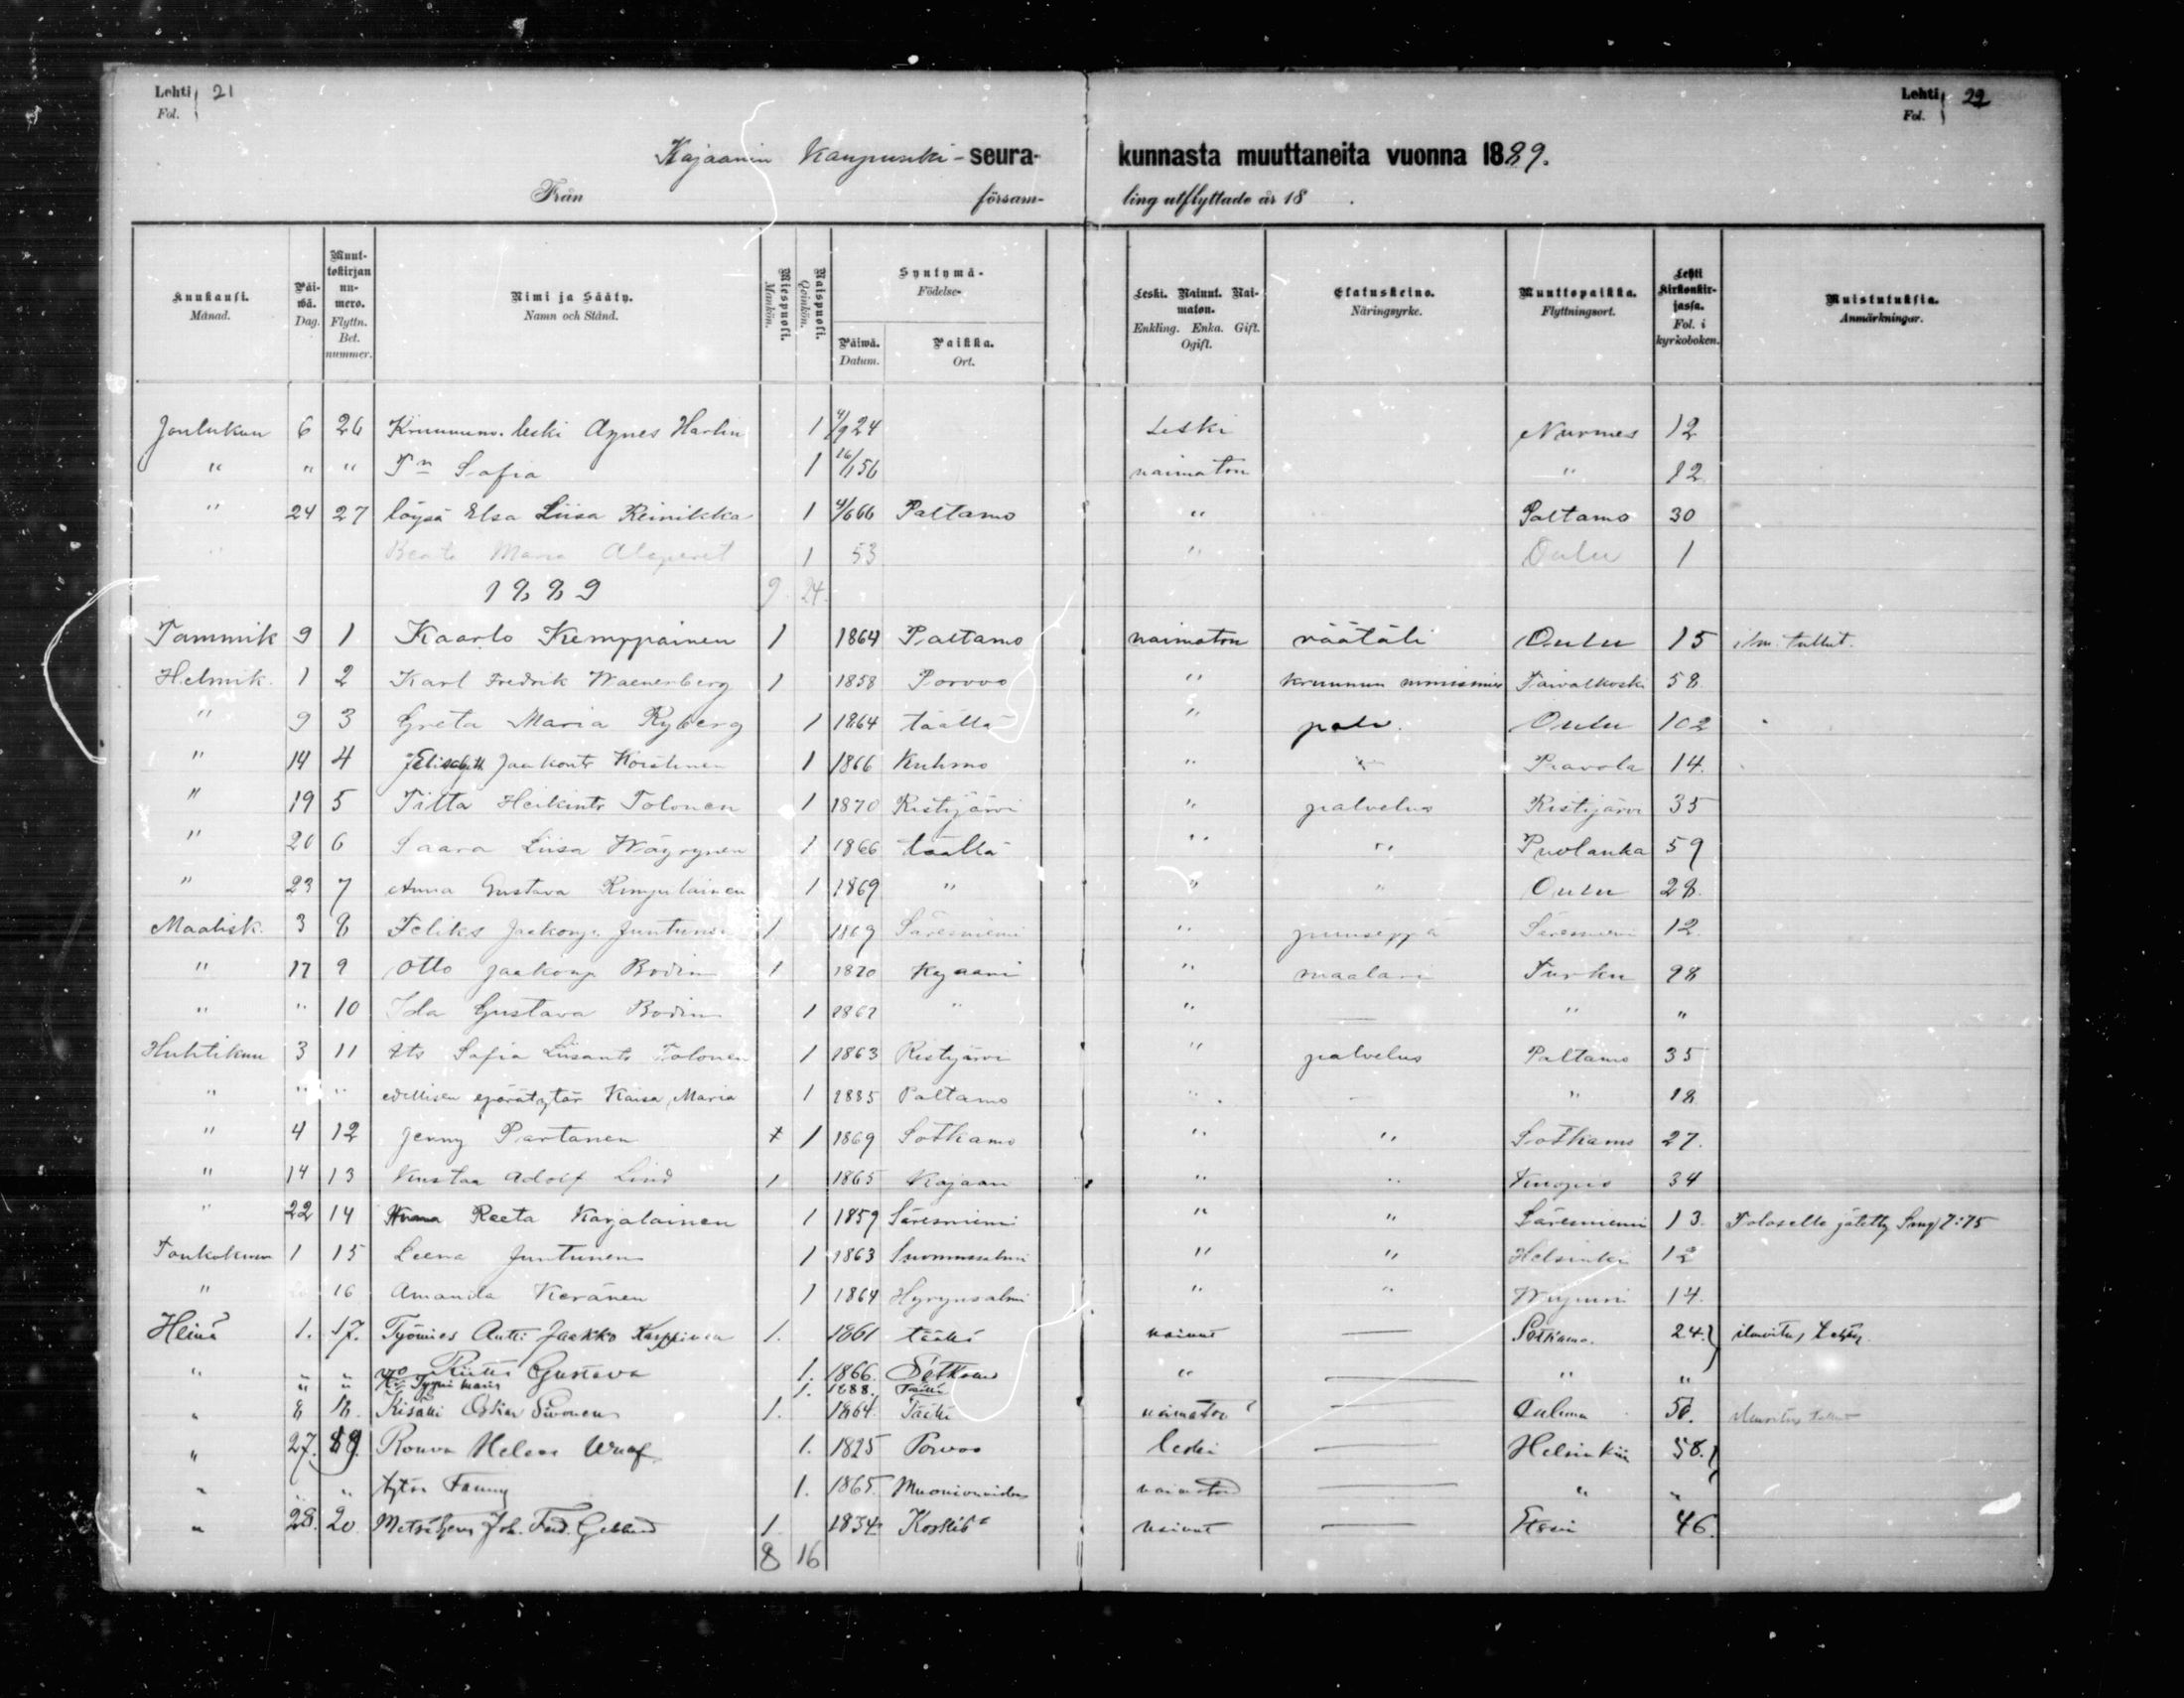 Lehti 21
Fol.
Lehti 22
Fol.
Kajaanin Kaupunki - seura- kunnasta muuttaneita vuonna 1889.
Från församling utflyttade år 18 .
Kuukausi. Månad.
Päiwä. Dag.
Muuttokirjan numero. Flyttn. Bet. nummer.
Nimi ja Sääty. Namn och Stånd.
Miespuoli. Mankön.
Naispuoli. Qvinkön.
Syntymä- Födelse-
Päiwä. Datum.
Paikka. Ort.
Leski. Nainut. Naimaton. Enkling. Enka. Gift. Ogift.
Elatuskeino. Näringsyrke.
Muuttopaikka. Flyttningsort.
Lehti Kirkonkirjassa. Fol. i kyrkoboken.
Muistutuksia. Anmärkningar.
Joulukuu 6 26 leski Agnes Harlin 1 4/9 24 Leski Nurmes 12
" " " Tr Sofia 1 16/1 56 naimaton " 12
" 24 27 löysä Elsa Liisa Reinikka 1 4/6 66 Paltamo " Paltamo 30
Maria 1 53 " Oulu 1
1889 9 24
Tammik 9 1 Kaarlo Kemppainen 1 1864 Paltamo naimaton räätäli Oulu 15 ilm. tullut.
Helmik. 1 2 Karl Fredrik Waenerberg 1 1858 Porvoo " kruunun Taivalkoski 58
" 9 3 Greta Maria Ryberg 1 1864 täällä " palv. Oulu 102
" 14 4 Elisabeth Jaakontr 1 1866 Kuhmo " " Paavola 14.
" 19 5 Titta Heikintr Tolonen 1 1870 Ristijärvi " palvelus Ristijärvi 35
" 20 6 Saara Liisa Wäyrynen 1 1866 täällä " " Puolanka 59
" 23 7 Anna Gustava Rimpiläinen 1 1869 " " " Oulu 28.
Maalisk. 3 8 Feliks Jaakonp. Juntunen 1 1869 Säresniemi " puuseppä Säresniemi 12.
" 17 9 Otto Jaakonp Bodin 1 1870 Kajaani " maalari Turku 98
" " 10 Ida Gustava Bodin 1 1867 " " — " "
Huhtikuu 3 11 Its Sofia Liisantr Tolonen 1 1863 Ristijärvi " palvelus Paltamo 35
" " " edellisen epärätytär Kaisa Maria 1 1885 Paltamo " - " 18
" 4 12 Jenny Partanen x 1 1869 Sotkamo " " Sotkamo 27.
" 14 13 Kustaa Adolf Lind 1 1865 Kajaani " " Kuopio 34
" 22 14 Reeta Karjalainen 1 1859 Säresniemi " " Säresniemi 13. jätetty 7:75
Toukokuu 1 15 Leena Juntunen 1 1863 Suomussalmi " " Helsinki 12
" 16 Amanda Keränen 1 1864 Hyrynsalmi " " Wiipuri 14.
Heinä 1. 17. Työmies Antti Jaakko Karppinen 1. 1861 täällä nainut — Sotkamo. 24.
" " " vo Riitta Gustava 1. 1866. Sotkamo " — " "
" " Maria 1. 1888. Täällä
" 8 18. Kisälli Oskar Sivonen 1. 1864. Täällä naimaton — 56.
" 27. 19. Rouva Helena 1. 1825 Porvoo leski — Helsinkiin 58.
" " " tytär Fanny 1. 1865. naimaton — " "
" 28. 20 Joh. Fred. 1. 1834 nainut — 46.
8 16